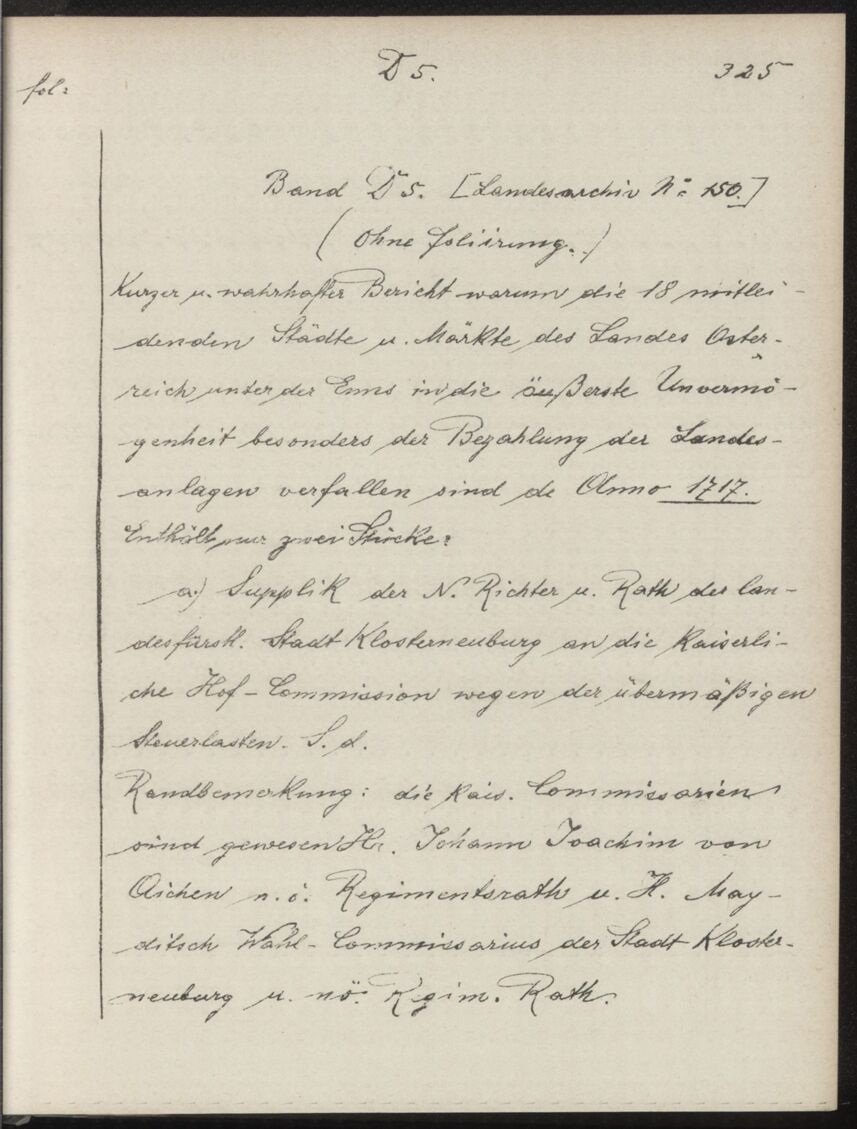 D 5. 325
fol:
Band D 5. [Landesarchiv No 150.]
(Ohne Foliirung.)
Kurzer u. wahrhafter Bericht warum die 18 mitlei-
denden Städte u. Märkte des Landes Öster-
reich unter der Enns in die äußerste Unvermö-
genheit besonders der Bezahlung der Landes-
anlagen verfallen sind de Anno 1717.
Enthält nur zwei Stücke:
a.) Supplik der N. Richter u. Rath der lan-
desfürstl. Stadt Klosterneuburg an die Kaiserli-
che Hof-Commission wegen der übermäßigen
Steuerlasten. S. d.
Randbemerkung: die Kais. Commissarien
sind gewesen Hr. Johann Joachim von
Aichen n. ö. Regimentsrath u. H. May-
ditsch Wahl-Commissarius der Stadt Kloster-
neuburg u. nö. Regim. Rath.